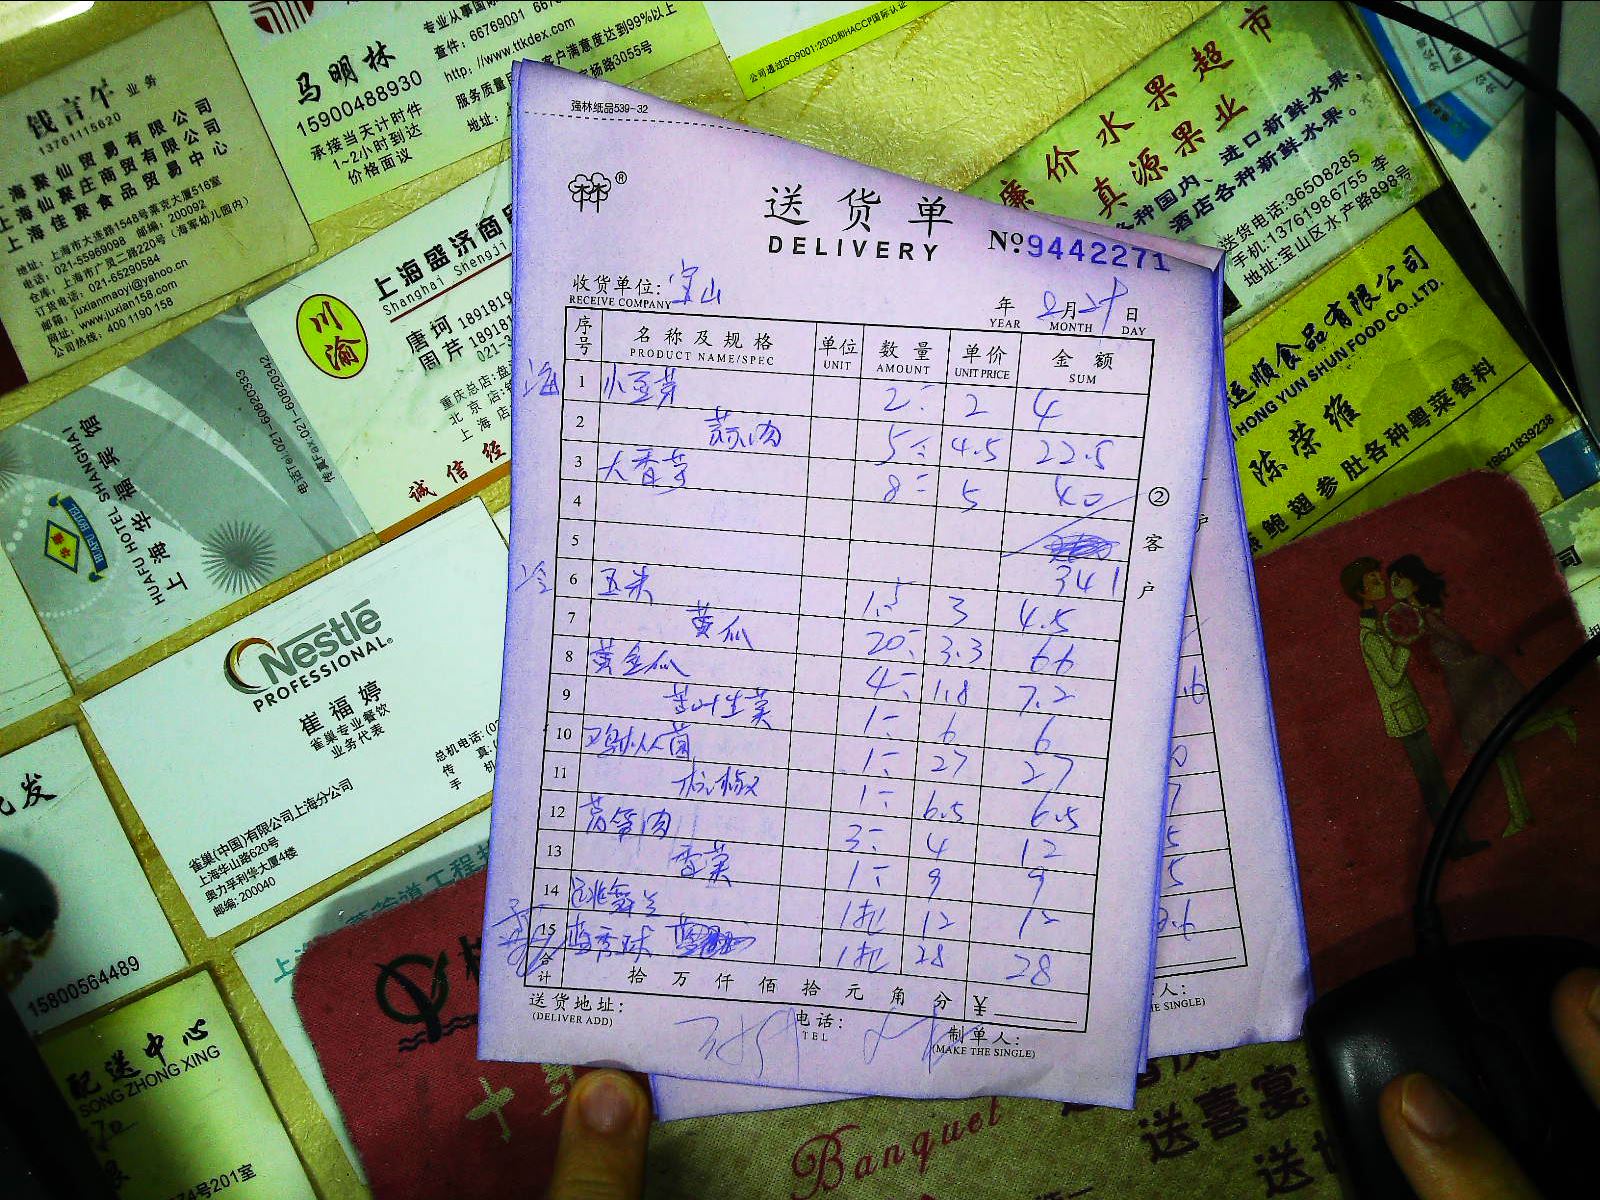 钱言午 业务
13761115620
海聚仙贸易有限公司
上海仙聚庄商贸有限公司
上海佳聚食品贸易中心
地址：上海市大连路1548号莱克大厦516室
电话：021-55969098 邮编：200092
仓库：上海市广灵二路220号（海军幼儿园内）
订货电话：021-65290584
邮箱：juxianmaoyi@yahoo.cn
网址：www.juxian158.com
公司热线：400 1190 158
专业从事国际
马明林
15900488930
查件：66769001
http://www.ttkdex.com
客户满意度达到99%以上
服务质量
杨路3055号
地址：
承接当天计时件
1~2小时到达
价格面议
公司通过ISO9001:2000和HACCP国际认证
廉价水果超市
真源果业
各种国内、进口新鲜水果。
酒店各种新鲜水果。
送货电话:36508285 李
手机:13761986755
地址:宝山区水产路898号
运顺食品有限公司
HONG YUN SHUN FOOD CO.,LTD.
陈荣维
鲍翅参肚各种粤菜餐料
18621839238
川渝
上海盛济商
Shanghai Shengji
唐珂 189181
周芹 18918
021-3
重庆总店:盘
北京店:
上海店
诚信经
上海华福宾馆
HUAFU HOTEL SHANGHAI
HUAFU HOTEL
电话Tel:021-60820333
传真Fax:021-60820342
Nestlé
PROFESSIONAL®
崔福婷
雀巢专业餐饮
业务代表
总机电话:
传 真:
手 机
雀巢(中国)有限公司上海分公司
上海华山路620号
奥力孚利华大厦4楼
邮编: 200040
15800564489
配送中心
SONG ZHONG XING
201室
强林纸品539-32
林®
送货单
DELIVERY
No.9442271
收货单位: 宝山
RECEIVE COMPANY
年 8月29日
YEAR MONTH DAY
序号 名称及规格 单位 数量 单价 金额
PRODUCT NAME/SPEC UNIT AMOUNT UNIT PRICE SUM
海 1 小豆芽 2 2 4
2 蒜肉 5 4.5 22.5
3 大香芋 8 5 40
4
5
341
冷 6 玉米 1.5 3 4.5
7 黄瓜 20 3.3 66
8 黄金瓜 4 1.8 7.2
9 苦叶生菜 1 6 6
10 鸡枞菌 1 27 27
11 杭椒 1 6.5 6.5
12 莴笋肉 3 4 12
13 香菜 1 9 9
14 跳舞兰 1扎 12 12
15 蓝秀球 1扎 28 28
合计 拾万仟佰拾元角分 ¥
送货地址:
(DELIVER ADD)
电话:
TEL
制单人:
(MAKE THE SINGLE)
②客户
人:
THE SINGLE)
Banquet
送喜宴